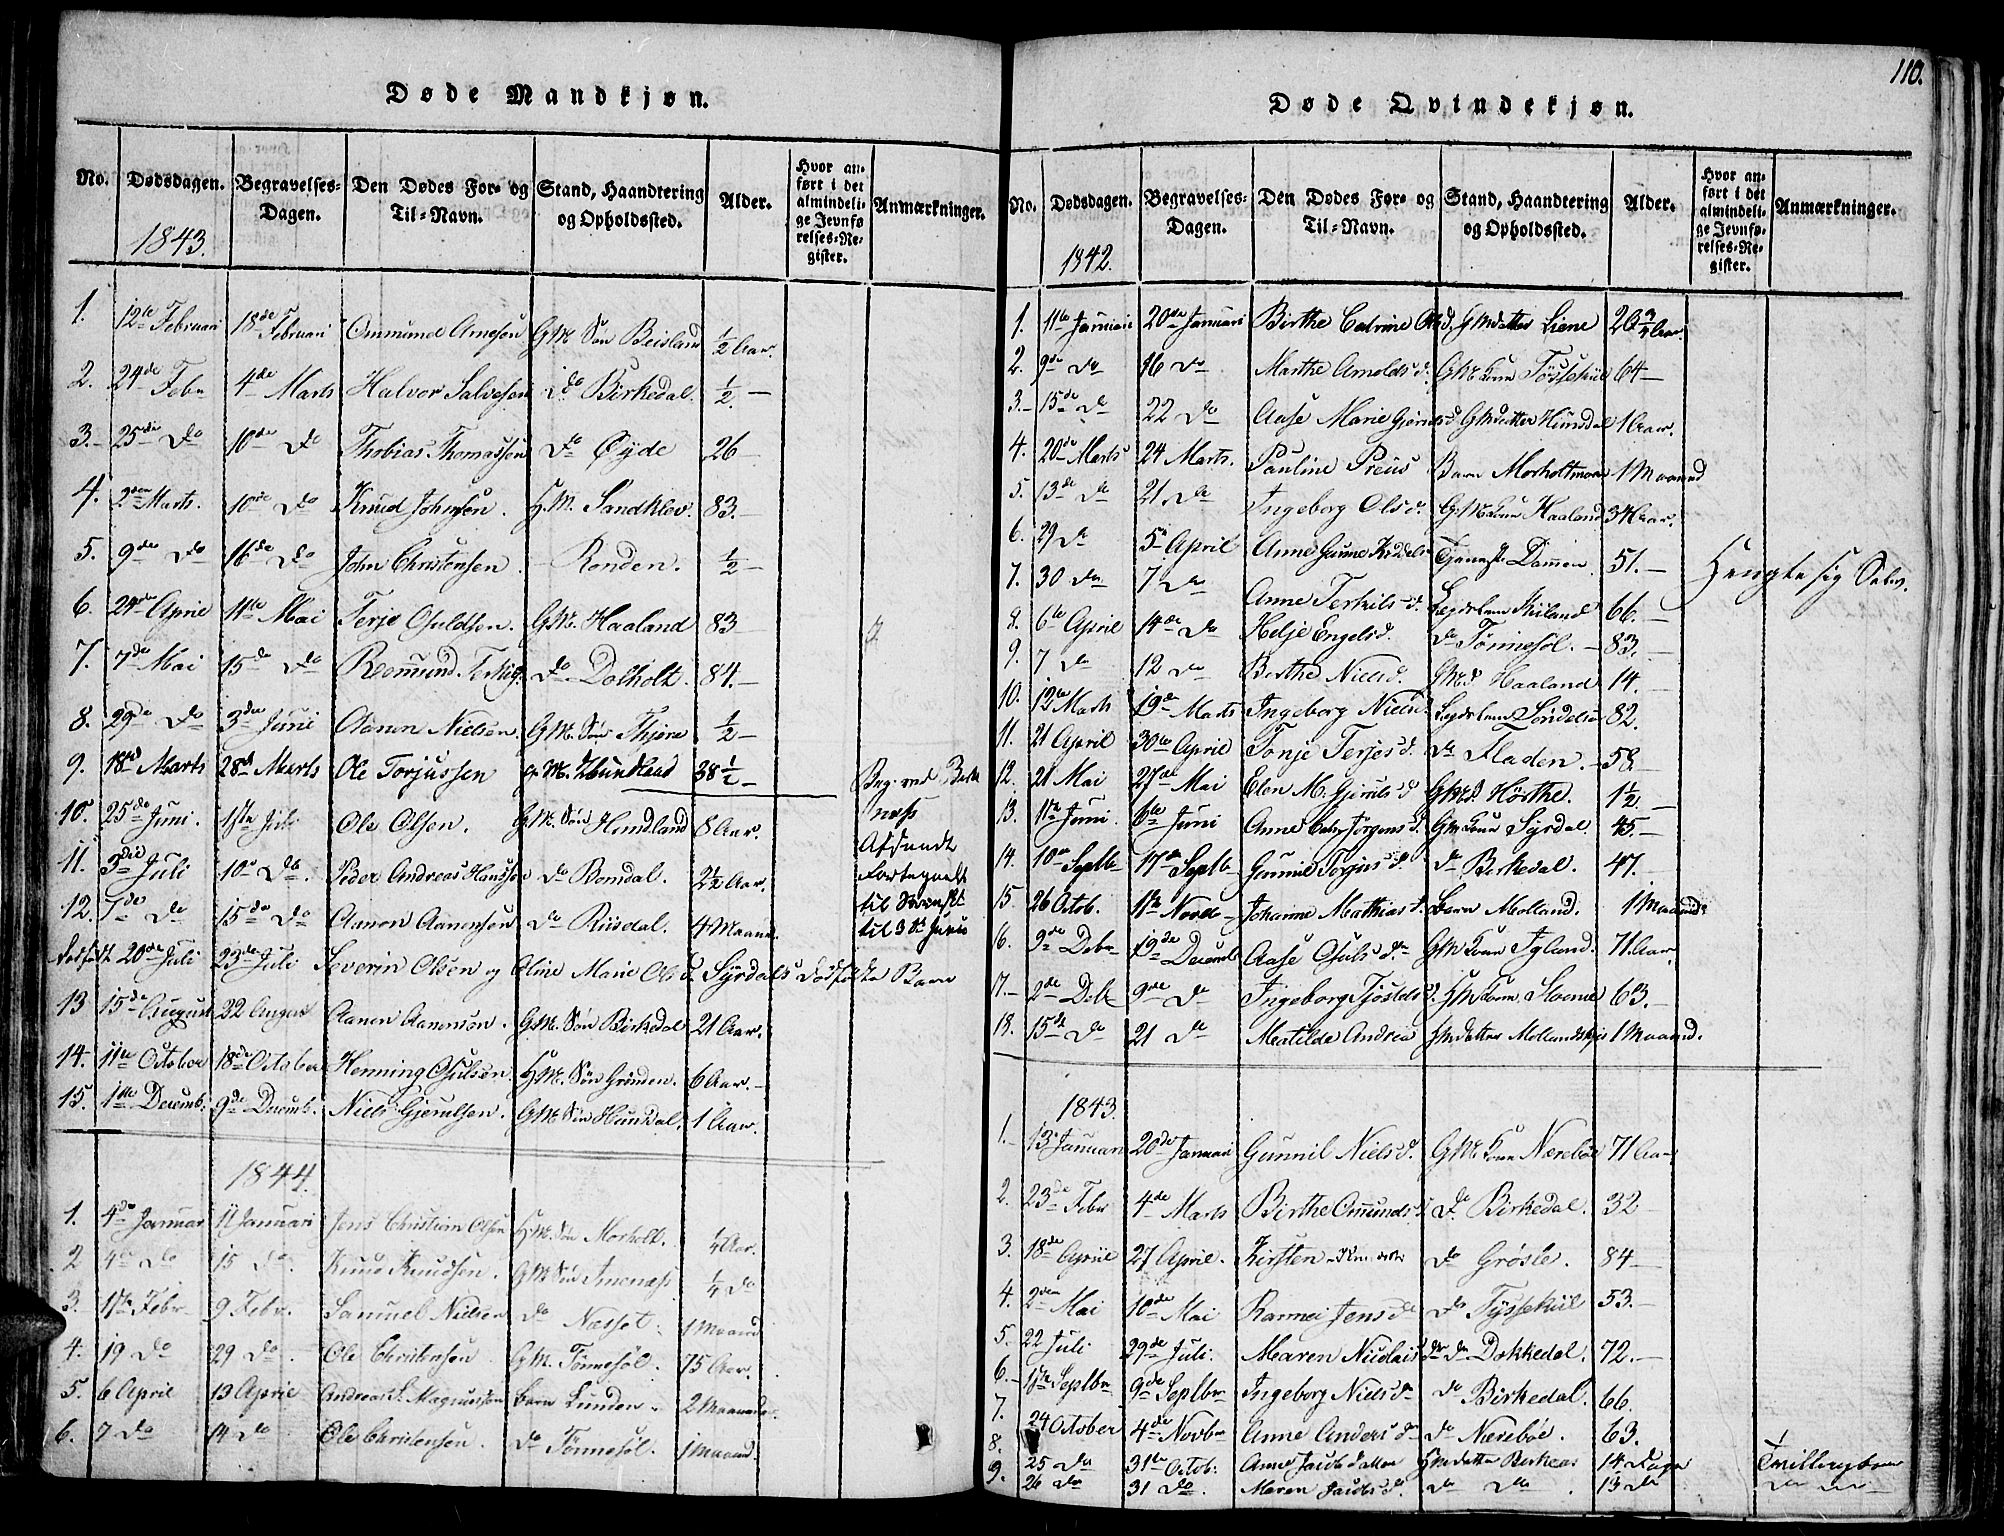 110.
Døde Mandkjøn.
No. Dødsdagen. Begravelses-Dagen. Den Dødes For- og Til-Navn. Stand, Haandtering og Opholdssted. Alder. Hvor anført i det almindelige Jevnførelses-Register. Anmærkninger.
1843.
1. 12te Februari 18de Februari Ommund Arnesen GM. Søn Beisland ½ Aar.
2. 24de Febr 4de Marts Halvor Salvesen do Birkedal. ½ —
3. 25de Do 10de Do Thobias Thomassen Do Øyde 26 —
4. 2den Marts. 10de Do Knud Johnsen. H.M. Sandklev. 83. —
5. 9de Do 16de Do John Christensen. Ronden. ½ —
6. 24de April 11te Mai Terje Osuldsen. GM. Haaland 83 —
7. 7de Mai 15de Do Romund Terkig. Do Dolholt. 84. —
8. 29de Do 3die Juni Aanon Nielsen. GM. Søn ½ —
9. 18de Marts 28de Marts Ole Torjussen G.M. Hundland 38 ½ — Beg. ved
10. 25de Juni. 1ste Juli Ole Olsen. GM. Søn Hundland 8 Aar. næss
Afsendt
11. 3die Juli 10de Do. Peder Andreas Hanssen Do Bomdal. 2½ Aar. Fortegnelse
12. 7de Do 15de Do Aanon Aanonsen Do Riisdal. 4 Maaned til 3die Junis
Dødfødt 20de Juli 23de Juli Severin Olsen og Oline Marie Olsd. Syrdals Dødfødte Barn
13 15de August 22 August Aanon Aanonsen. GM. Søn Birkedal 21 Aar.
14. 11te October 18de October Henning Osulsen. HM. Søn Grønden. 6 Aar. —
15. 1ste Decemb. 9de Decemb. Niels Gjerulsen. GM Søn Hunsdal. 1 Aar.
1844.
1. 4de Januar 11 Januari Jens Christian Olsen HM. Søn Morholt. ¼ Aar.
2 4de Do 15 Do. Knud Knudsen. GM Søn Imenæs ¼ Do
3. 1ste Febr 9 Febr. Samuel Nielsen Do Næsset. 1 Maaned
4. 19 Do 29 Do. Ole Christensen GM. Tønnesøl. 75 Aar.
5. 6 April 13 April Andreas L. Magnussen Barn Lunden. 2 Maaneder.
6. 7 Do 14 Do Ole Christensen. Do Tønnesøl. 1 Maaned.
Døde Qvindekjøn.
No. Dødsdagen. Begravelses-Dagen. Den Dødes For- og Til-Navn. Stand, Haandtering og Opholdssted. Alder. Hvor anført i det almindelige Jevnførelses-Register. Anmærkninger.
1842.
1. 11te Januari 20de Januari Birthe Catrine Olsd. GM datter Liene 20 ¾ Aar.
2. 9de Do 16 Do Marthe Arnolds d. GM. Kone Tøssekiil 64 —
3. — 15de Do 22 Do Aase Marie Gjeruls d. GM datter Hunsdal 1 Aar.
4. 20de Marts 24 Marts. Pauline Preus Barn Morholtmoen 1 Maaned
5. 13de Do 21. Do Ingeborg Ols d. GM Kone Haaland 34 Aar.
6. 29 Do 5te April Anne Gunne Tjenest. Dammen 51. — Hengte sig Selv.
7. 30 Do 7 Do Anne Terkils d. Lægdslem Skiland 66. —
8. 6te April 14de Do Helje Engelsd. Do Tønnesøl. — 83. —
9. 7 Do 12 Do Berthe Nielsd. GMd. Haaland 14. —
10. 12te Marts 19de Marts Ingeborg Nielsd Lægdslem 82.
11. 21 April 30te April Tonje Terjes d. Do Fladen. — 58. —
12. 21 Mai 27de Mai Elen M. Gjeruls d GMd. Hørthe. 1½ —
13. 1ste Juni 6te Juni Anne Cath. Jørgens d. GM Kone Syrdal. 45. —
14. 10de Septb 17de Septb Gunnil Torjus d. Do Birkedal. 47. —
15 26 Octob. 1ste Novb Johanne Mathias d. Barn Molland. 1 Maaned.
16. 9de Debr 19de Decemb Aase Osuls d. GM Kone Igland. 71 Aar.
17. — 2de Deb 9de Do Ingeborg Tjøstels d. HM Kone Stoeme 63. —
18. 15de Do 21 Do Matilde Andrea HM datter 1 Maaned.
1843.
1. — 13 Januari 20de Januari Gunnil Niels d. GM Kone Nærebøe 71 Aar
2. 23de Febr 4de Marts Birthe Ommunds d. Do Birkedal. 32
3. 18de April 27 April. Kirsten Do Grøsle. 84 —
4. 2den Mai 10de Mai Rannei Jens d Do Tyssekiil 53. —
5. 22 Juli 29de Juli. Maren Nicolais d Do Dokkedal. 72. —
6. — 1ste Septbr 9de Septbr Ingeborg Niels d Do Birkedal. 66.
7. 24 October 4de Novbr Anne Anders d Do Nærebøe. 63. —
8. 25 Do 31te Octob. Anne Jacobsdatter HM datter Birkeas 14 Dage Tvillingbørn
9. 26 Do 31 Do. Maren Jacobs d. Do Do 15 Do Do